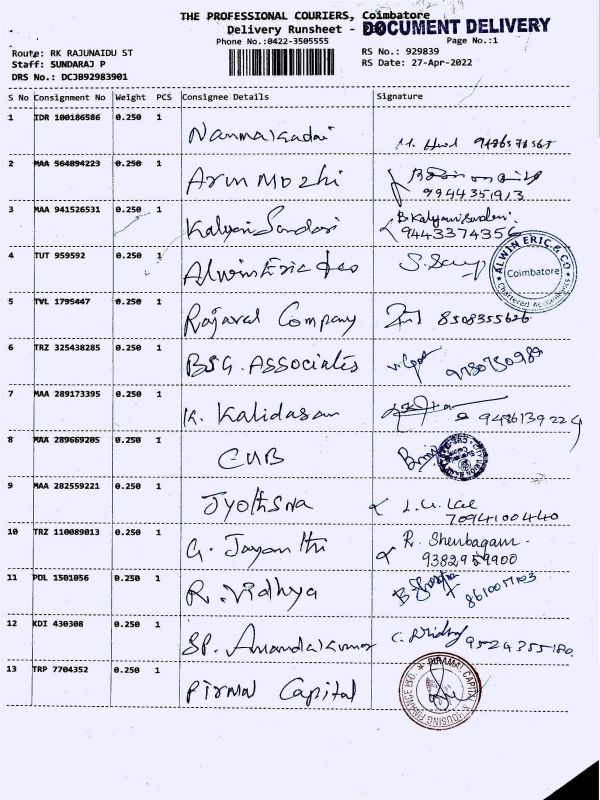 THE PROFESSIONAL COURIERS, Coimbatore
Delivery Runsheet -
DOCUMENT DELIVERY
Phone No.:0422-3505555
Page No.:1
Route: RK RAJUNAIDU ST
RS No.: 929839
Staff: SUNDARAJ P
RS Date: 27-Apr-2022
DRS No.: DCJB92983901
S No Consignment No Weight PCS Consignee Details Signature
1 IDR 100186586 0.250 1
2 MAA 564894223 0.250 1 Arun Mozhi 9944351913
3 MAA 941526531 0.250 1 Kalyani Sundari B. Kalyani Sundari
9443374356
4 TUT 959592 0.250 1 Alwin Eric &co
ALWIN ERIC & CO
Coimbatore
Chartered Accountants
5 TVL 1795447 0.250 1 Rajaval Company 8508355626
6 TRZ 325438285 0.250 1 BSG. ASSociates
7 MAA 289173395 0.250 1 K. Kalidasan 9486139224
8 MAA 289669205 0.250 1 CUB
9 MAA 282559221 0.250 1 Jyothsna
7094100440
10 TRZ 110089013 0.250 1 G. Jayanthi R. Shenbagam
9382959900
11 POL 1501056 0.250 1 R. Vidhya 8610017103
12 KDI 430308 0.250 1 SP. Anandakumar 9524355180
13 TRP 7704352 0.250 1 Pirmal Capital
PIRAMAL CAPITAL & HOUSING FINANCE LTD.